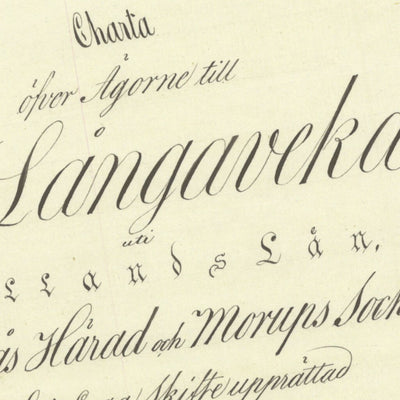 Charta
öfver Ägorne till
Långaveka
uti
llands Län,
ås Härad och Morups Sock
Laga Skifte upprättad